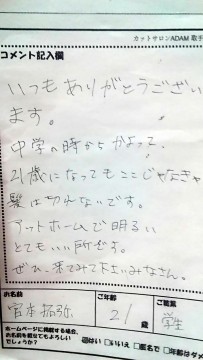 カットサロンADAM 取手
コメント記入欄
いつもありがとうござい
ます。
中学の時からかよって、
21歳になってもここじゃなきゃ
髪は切れないです。
アットホームで明るい
とてもいい所です。
ぜひ一来てみて下さいみなさん。
お名前
ご年齢
ご職業
宮本拓弥
21 歳
学生
ホームページに掲載する場合、
お名前を載せてもよろしい
でしょうか?
はい いいえ 匿名で 年齢はダメ